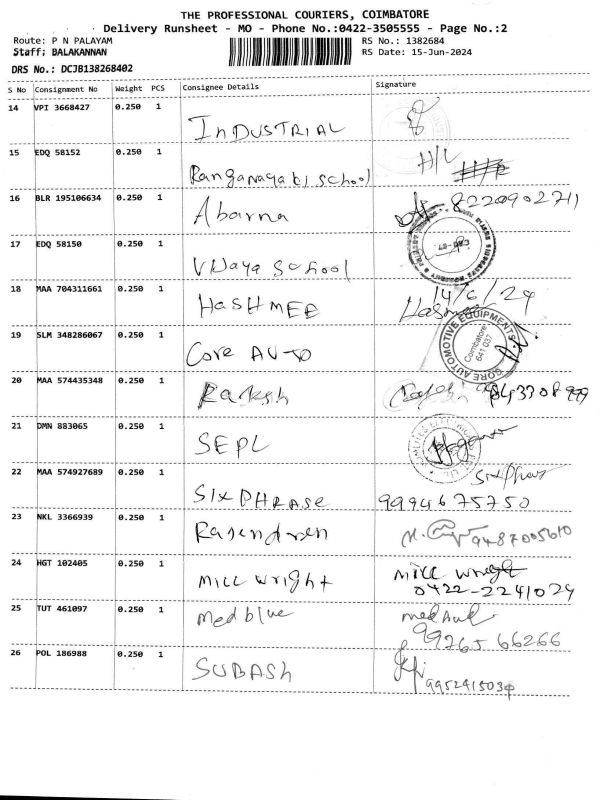 THE PROFESSIONAL COURIERS, COIMBATORE
Delivery Runsheet - MO - Phone No.:0422-3505555 - Page No.:2
Route: P N PALAYAM
RS No.: 1382684
Staff: BALAKANNAN
RS Date: 15-Jun-2024
DRS No.: DCJB138268402
S No Consignment No Weight PCS Consignee Details Signature
14 VPI 3668427 0.250 1 INDUSTRIAL
15 EDQ 58152 0.250 1 Ranganayaki school H/L
16 BLR 195106634 0.250 1 Abarna 8220902711
17 EDQ 58150 0.250 1 Vijaya School
14/6/24
18 MAA 704311661 0.250 1 HASHMEE
19 SLM 348286067 0.250 1 Core AUTO CORE AUTOMOTIVE EQUIPMENTS Coimbatore 641 037
20 MAA 574435348 0.250 1 Rakesh 9843308999
21 DMN 883065 0.250 1 SEPL
22 MAA 574927689 0.250 1 SIXPHRASE Sixphrase
9994675750
23 NKL 3366939 0.250 1 Rajendren 9487005610
24 HGT 102405 0.250 1 Mill wright Mill wright
0422-2241029
25 TUT 461097 0.250 1 Medblue
99765 66266
26 POL 186988 0.250 1 SUBASh